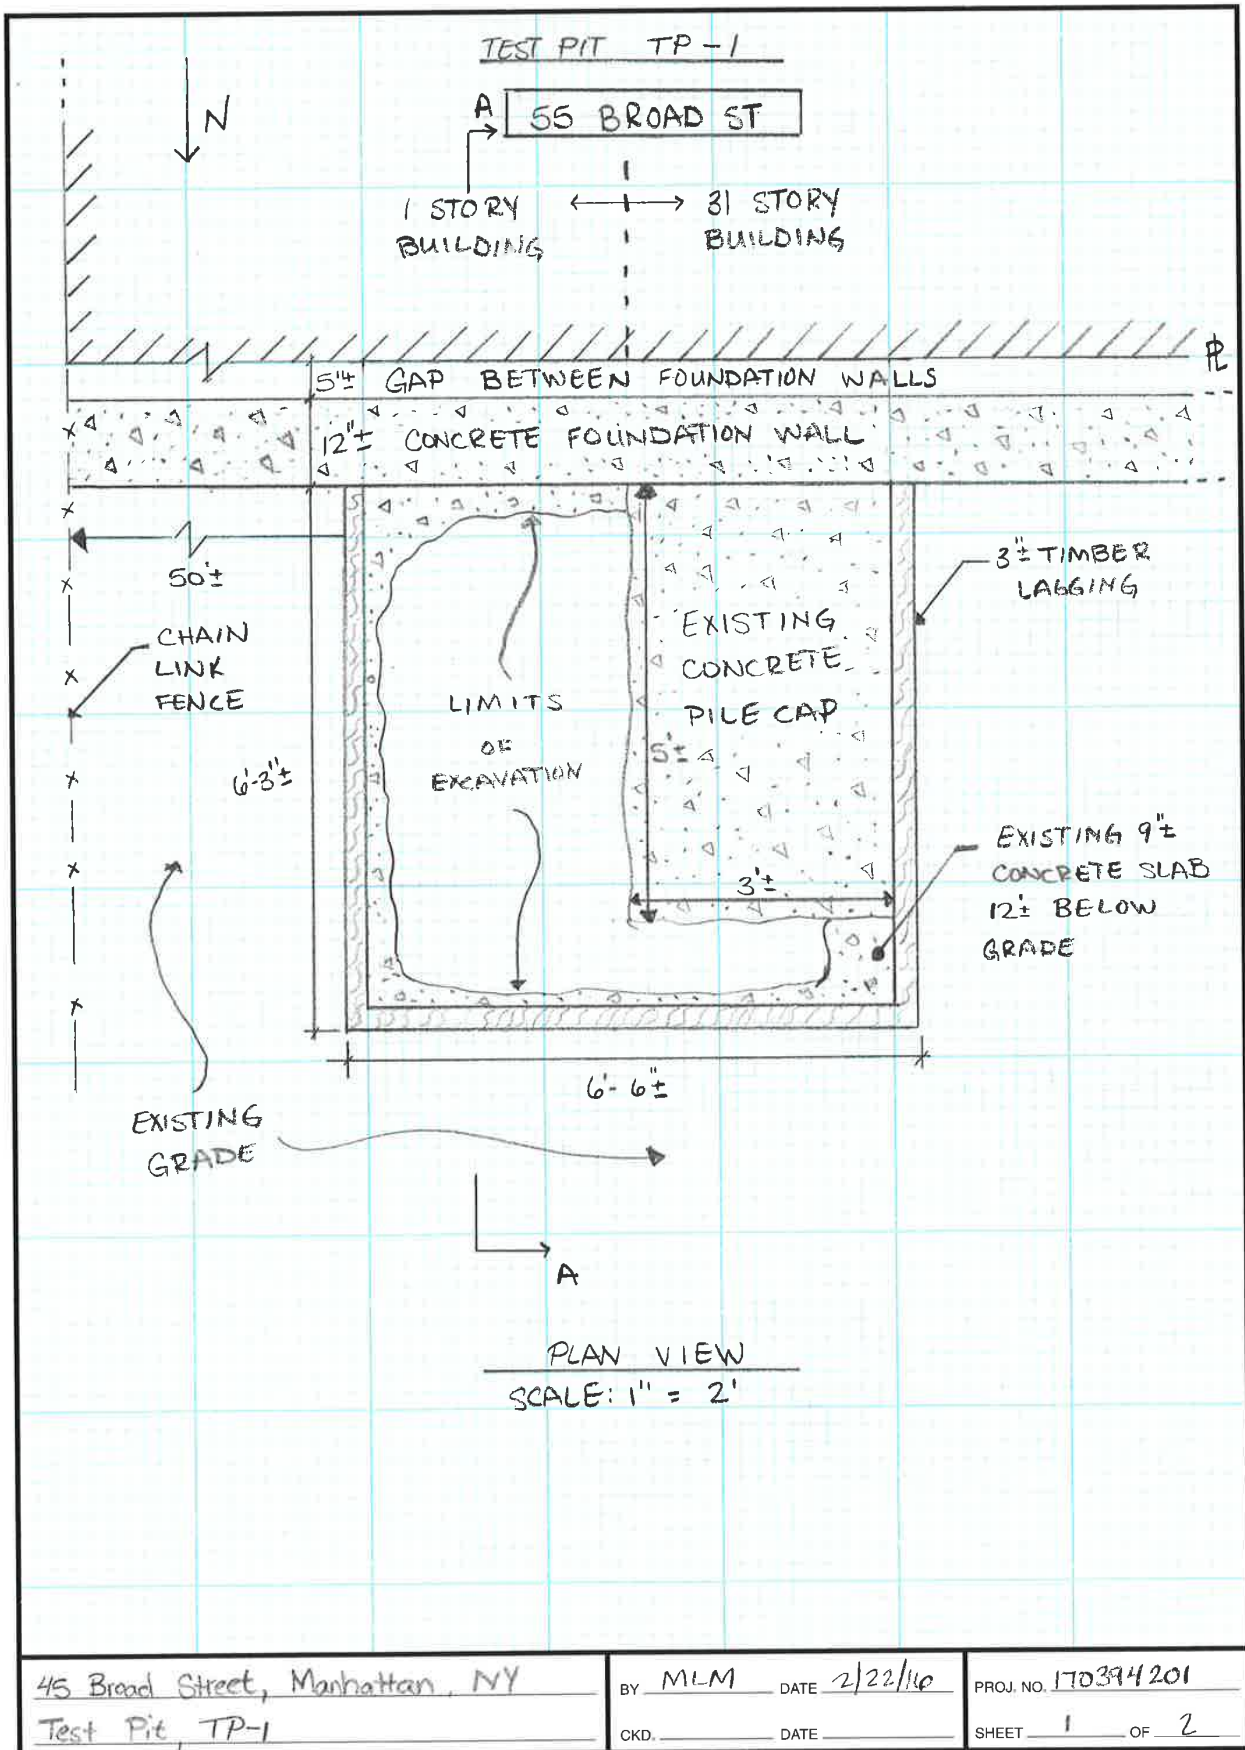 TEST PIT TP-1
N
A
55 BROAD ST
1 STORY
BUILDING
31 STORY
BUILDING
5"± GAP BETWEEN FOUNDATION WALLS
PL
12"± CONCRETE FOUNDATION WALL
50'±
3"± TIMBER
LAGGING
CHAIN
LINK
FENCE
EXISTING
CONCRETE
PILE CAP
LIMITS
OF
EXCAVATION
5'±
6'-3"±
3'±
EXISTING 9"±
CONCRETE SLAB
12'± BELOW
GRADE
6'-6"±
EXISTING
GRADE
A
PLAN VIEW
SCALE: 1" = 2'
45 Broad Street, Manhattan, NY
Test Pit, TP-1
BY MLM DATE 2/22/16
CKD. DATE
PROJ. NO. 170394201
SHEET 1 OF 2